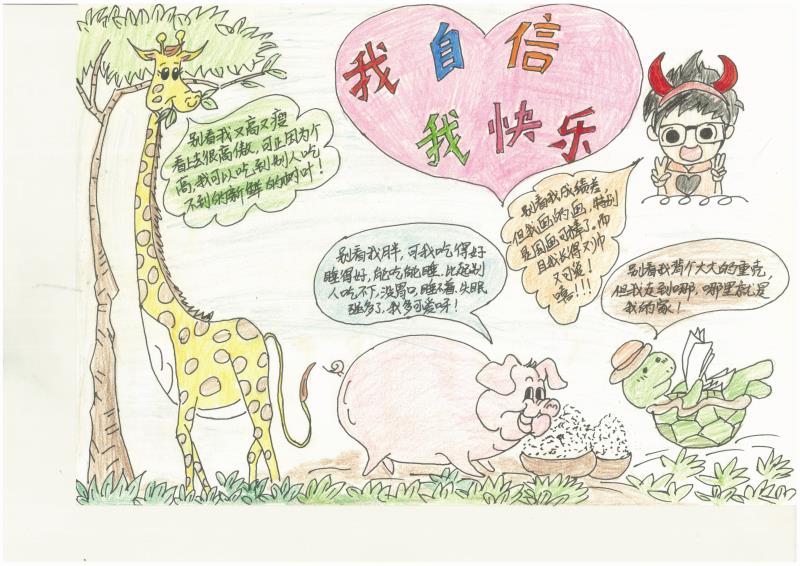 我自信
我快乐
别看我又高又瘦
看上去很高傲，可正因为个
高，我可以吃到别人吃
不到的新鲜的树叶！
别看我胖，可我吃得好
睡得好，能吃能睡，比起别
人吃不下，没胃口，睡不着，失眠
强多了，我多可爱呀！
别看我成绩差，
但我画的画，特别
是国画可棒了，而
且我长得又帅
又可爱！
嘻！！！
别看我背个大大的重壳，
但我走到哪，哪里就是
我的家！